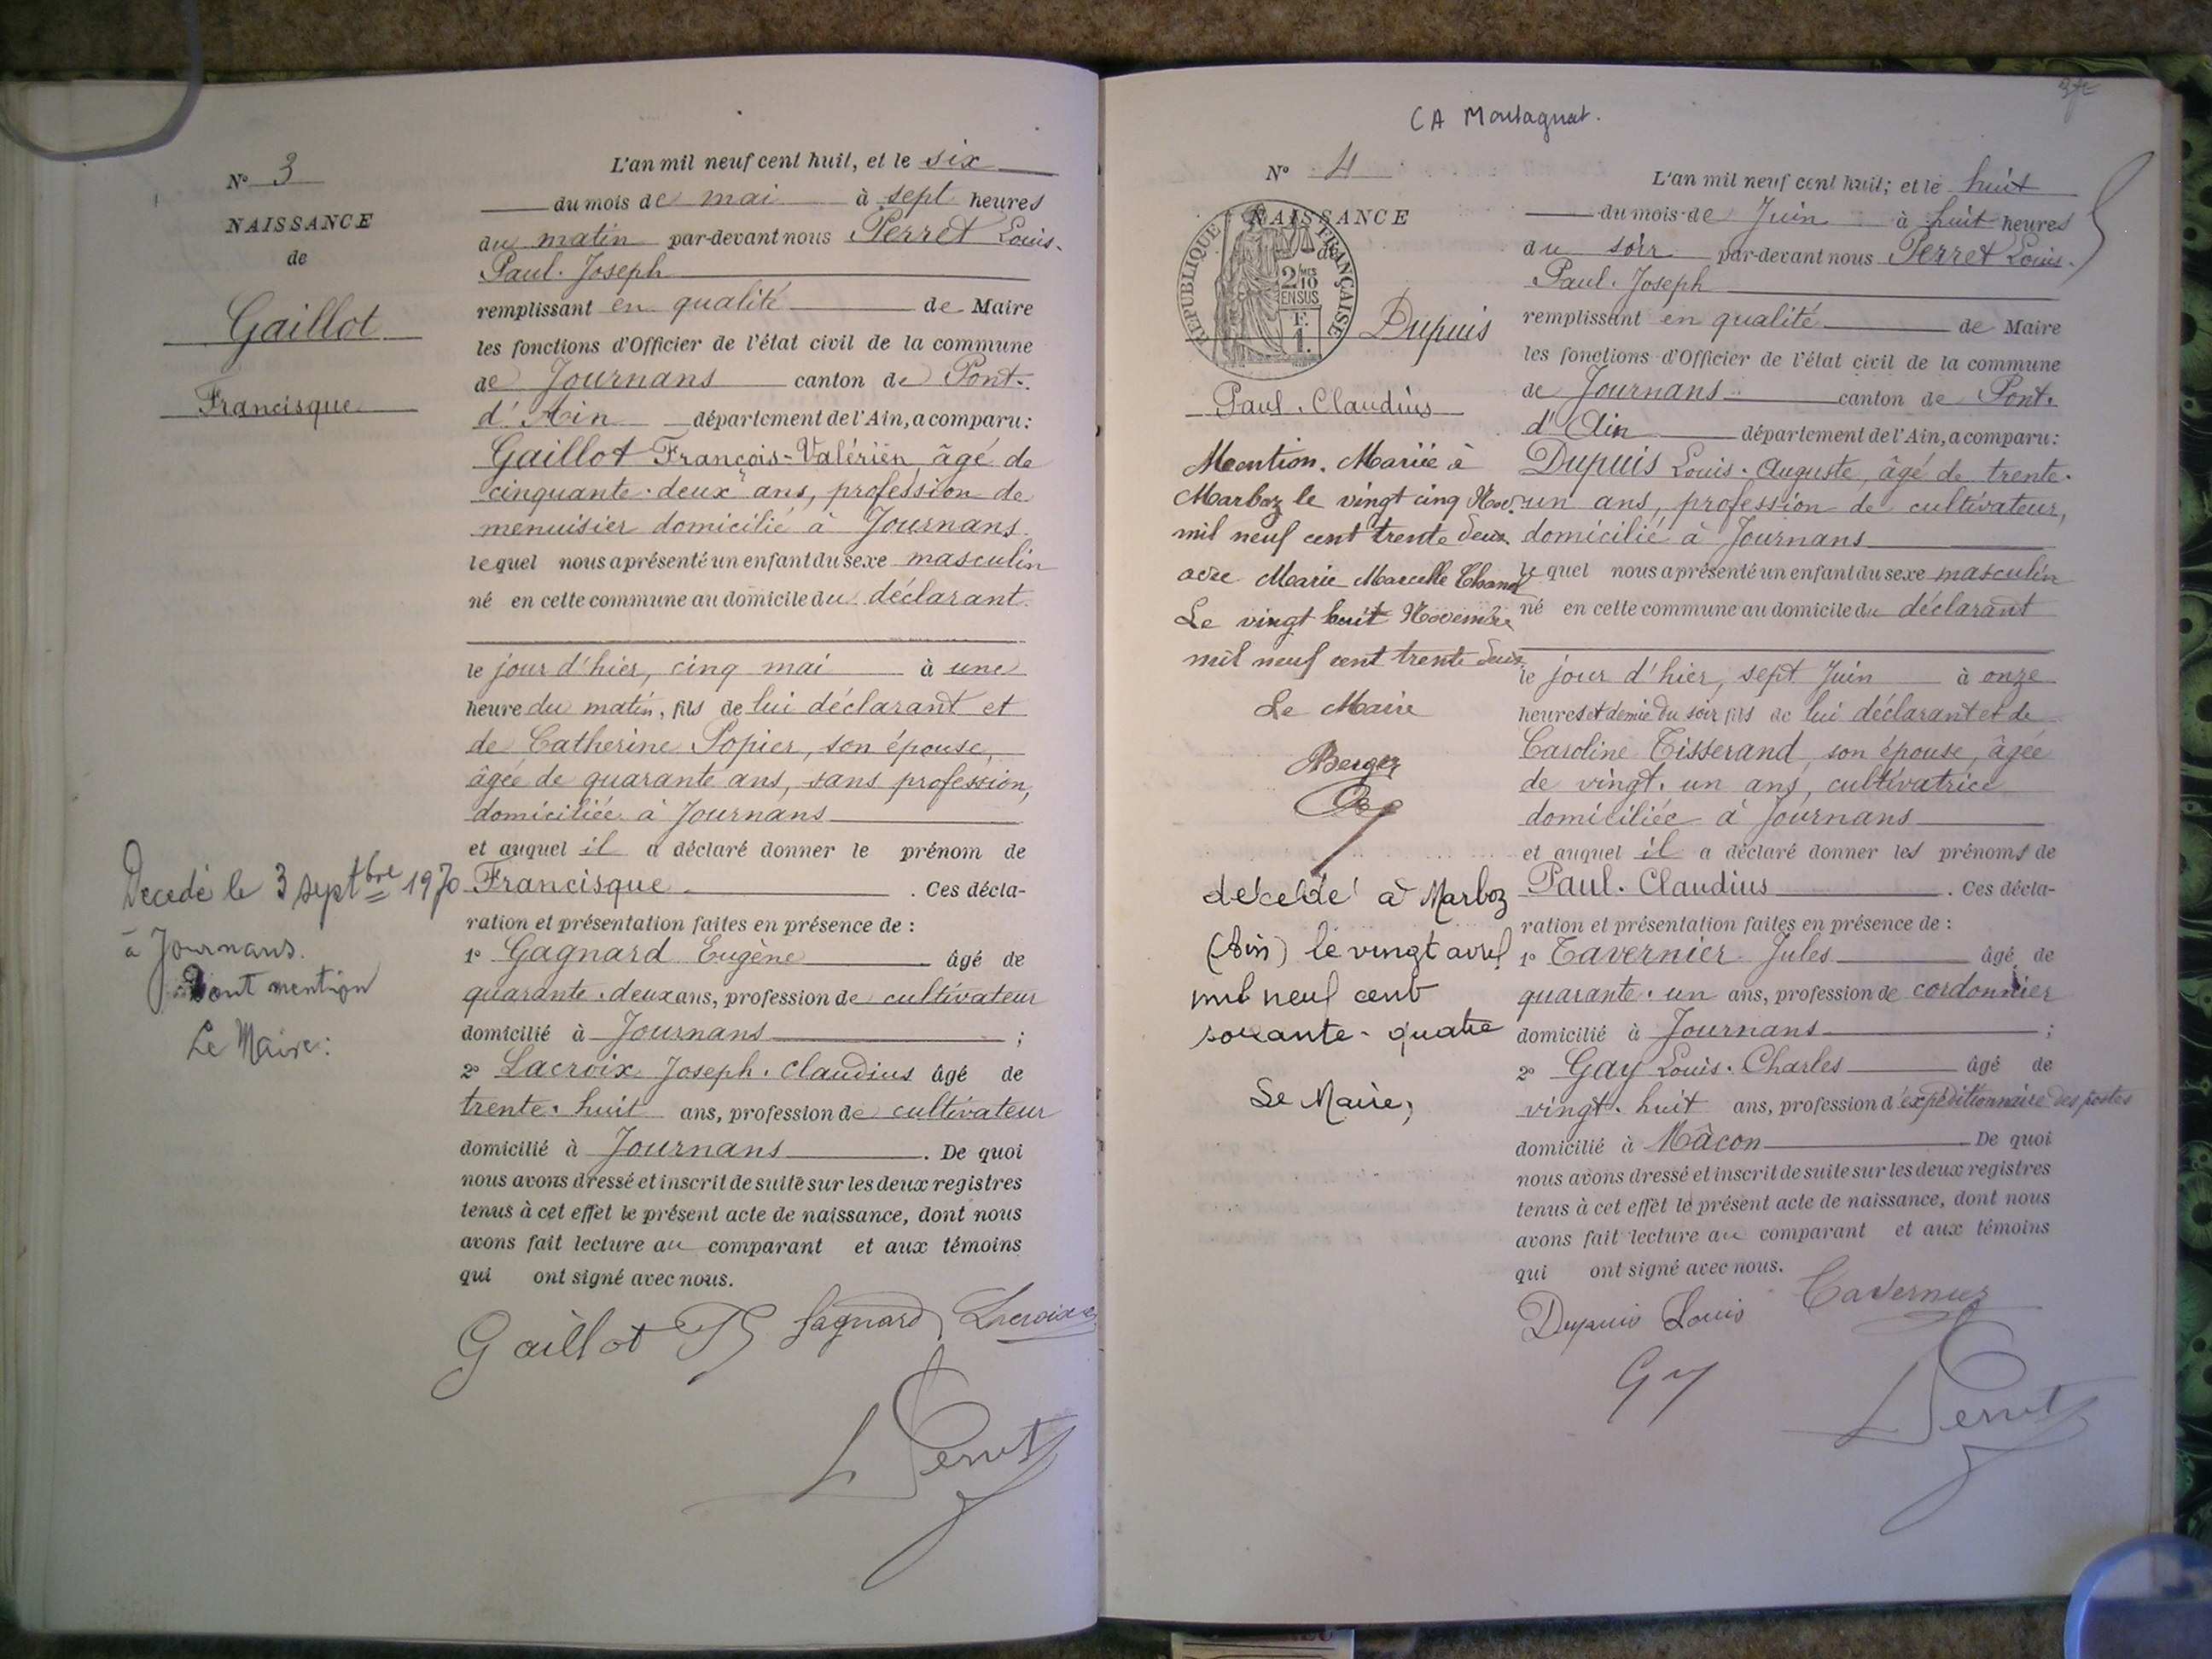 N° 3
NAISSANCE
de
Gaillot
Francisque
Decedé le 3 septbre 1970
à Journans.
Dont mention
Le Maire:
L'an mil neuf cent huit, et le six
du mois de mai à sept heures
du matin par-devant nous Perret Louis-
Paul-Joseph
remplissant en qualité de Maire
les fonctions d'Officier de l'état civil de la commune
de Journans canton de Pont-
d'Ain département de l'Ain, a comparu:
Gaillot François-Valérien âgé de
cinquante-deux ans, profession de
menuisier domicilié à Journans
lequel nous a présenté un enfant du sexe masculin
né en cette commune au domicile du déclarant
le jour d'hier, cinq mai à une
heure du matin, fils de lui déclarant et
de Catherine Popier, son épouse,
âgée de quarante ans, sans profession,
domiciliée à Journans
et auquel il a déclaré donner le prénom de
Francisque. Ces décla-
ration et présentation faites en présence de :
1° Gagnard Eugène âgé de
quarante-deux ans, profession de cultivateur
domicilié à Journans ;
2° Lacroix Joseph-Claudius âgé de
trente-huit ans, profession de cultivateur
domicilié à Journans. De quoi
nous avons dressé et inscrit de suite sur les deux registres
tenus à cet effet le présent acte de naissance, dont nous
avons fait lecture au comparant et aux témoins
qui ont signé avec nous.
Gaillot Gagnard Lacroix
L Perret
CA Montagnat.
N° 4
NAISSANCE
de
RÉPUBLIQUE FRANÇAISE
2/10mes
EN SUS
F.
1.
Dupuis
Paul-Claudius
Mention. Mariée à
Marboz le vingt cinq Nov.
mil neuf cent trente deux
avec Marie Marcelle
Le vingt huit Novembre
mil neuf cent trente deux
Le Maire
Berger
décédé à Marboz
(Ain) le vingt avril
mil neuf cent
soixante-quatre
Le Maire,
L'an mil neuf cent huit; et le huit
du mois de Juin à huit heures
du soir par-devant nous Perret Louis-
Paul-Joseph
remplissant en qualité de Maire
les fonctions d'Officier de l'état civil de la commune
de Journans canton de Pont-
d'Ain département de l'Ain, a comparu:
Dupuis Louis-Auguste, âgé de trente-
un ans, profession de cultivateur,
domicilié à Journans
lequel nous a présenté un enfant du sexe masculin
né en cette commune au domicile du déclarant
le jour d'hier, sept Juin à onze
heures et demie du soir fils de lui déclarant et de
Caroline Tisserand, son épouse, âgée
de vingt-un ans, cultivatrice
domiciliée à Journans
et auquel il a déclaré donner les prénoms de
Paul-Claudius. Ces décla-
ration et présentation faites en présence de :
1° Tavernier Jules âgé de
quarante-un ans, profession de cordonnier
domicilié à Journans ;
2° Gay Louis-Charles âgé de
vingt-huit ans, profession d'expéditionnaire des postes
domicilié à Mâcon De quoi
nous avons dressé et inscrit de suite sur les deux registres
tenus à cet effet le présent acte de naissance, dont nous
avons fait lecture au comparant et aux témoins
qui ont signé avec nous.
Dupuis Louis Tavernier
Gay L Perret